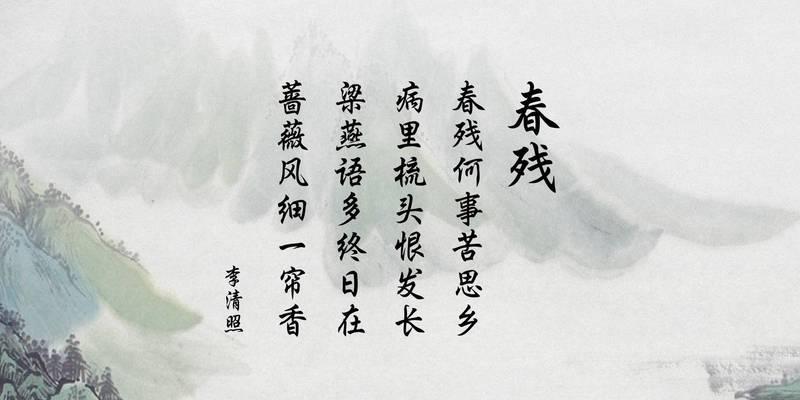 春残
春残何事苦思乡
病里梳头恨发长
梁燕语多终日在
蔷薇风细一帘香
李清照